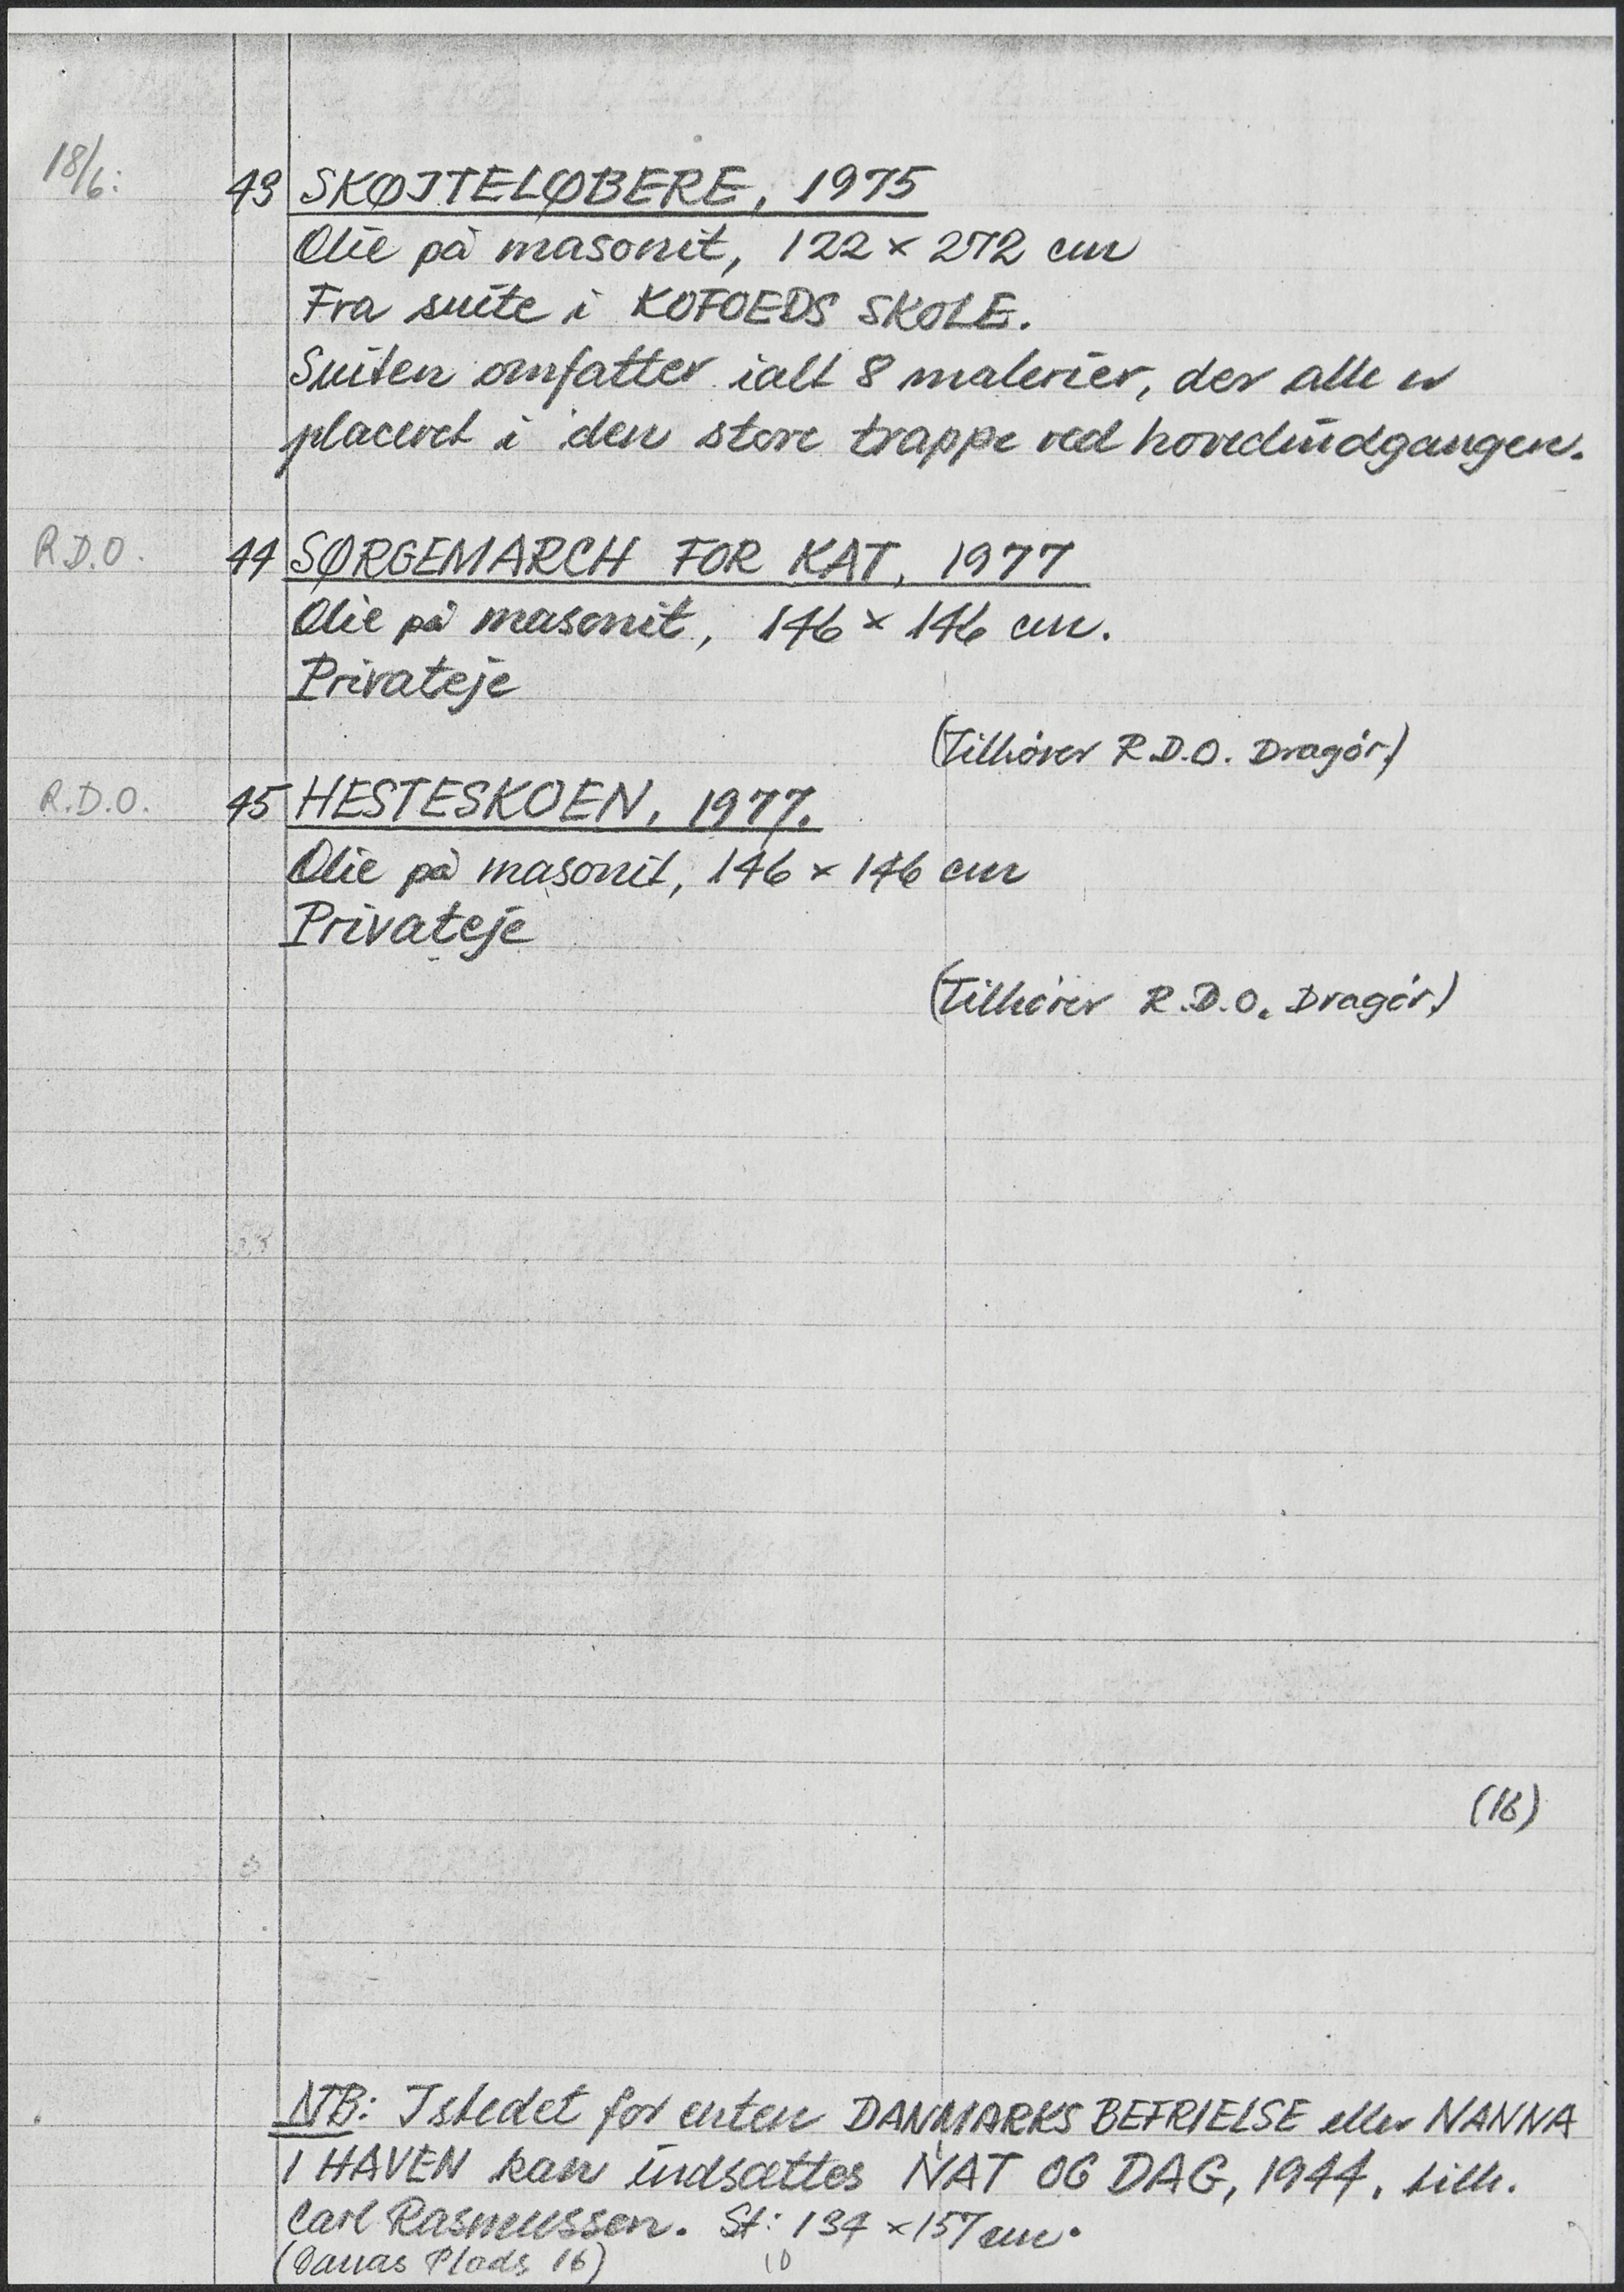 18/6: 43 SKØJTELØBERE, 1975
Olie på masonit, 122 x 272 cm
Fra suite i KOFOEDS SKOLE.
Suiten omfatter ialt 8 malerier, der alle er
placeret i den store trappe ved hovedindgangen.
R.D.O. 44 SØRGEMARCH FOR KAT, 1977
Olie på masonit, 146 x 146 cm.
Privateje
(Tilhører R.D.O. Dragør.)
R.D.O. 45 HESTESKOEN, 1977.
Olie på masonit, 146 x 146 cm
Privateje
(Tilhører R.D.O. Dragør.)
(16)
NB: Istedet for enten DANMARKS BEFRIELSE eller NANNA
I HAVEN kan indsættes NAT OG DAG, 1944, tilh.
Carl Rasmussen. St: 134 x 157 cm.
(Danas Plads 16) 10